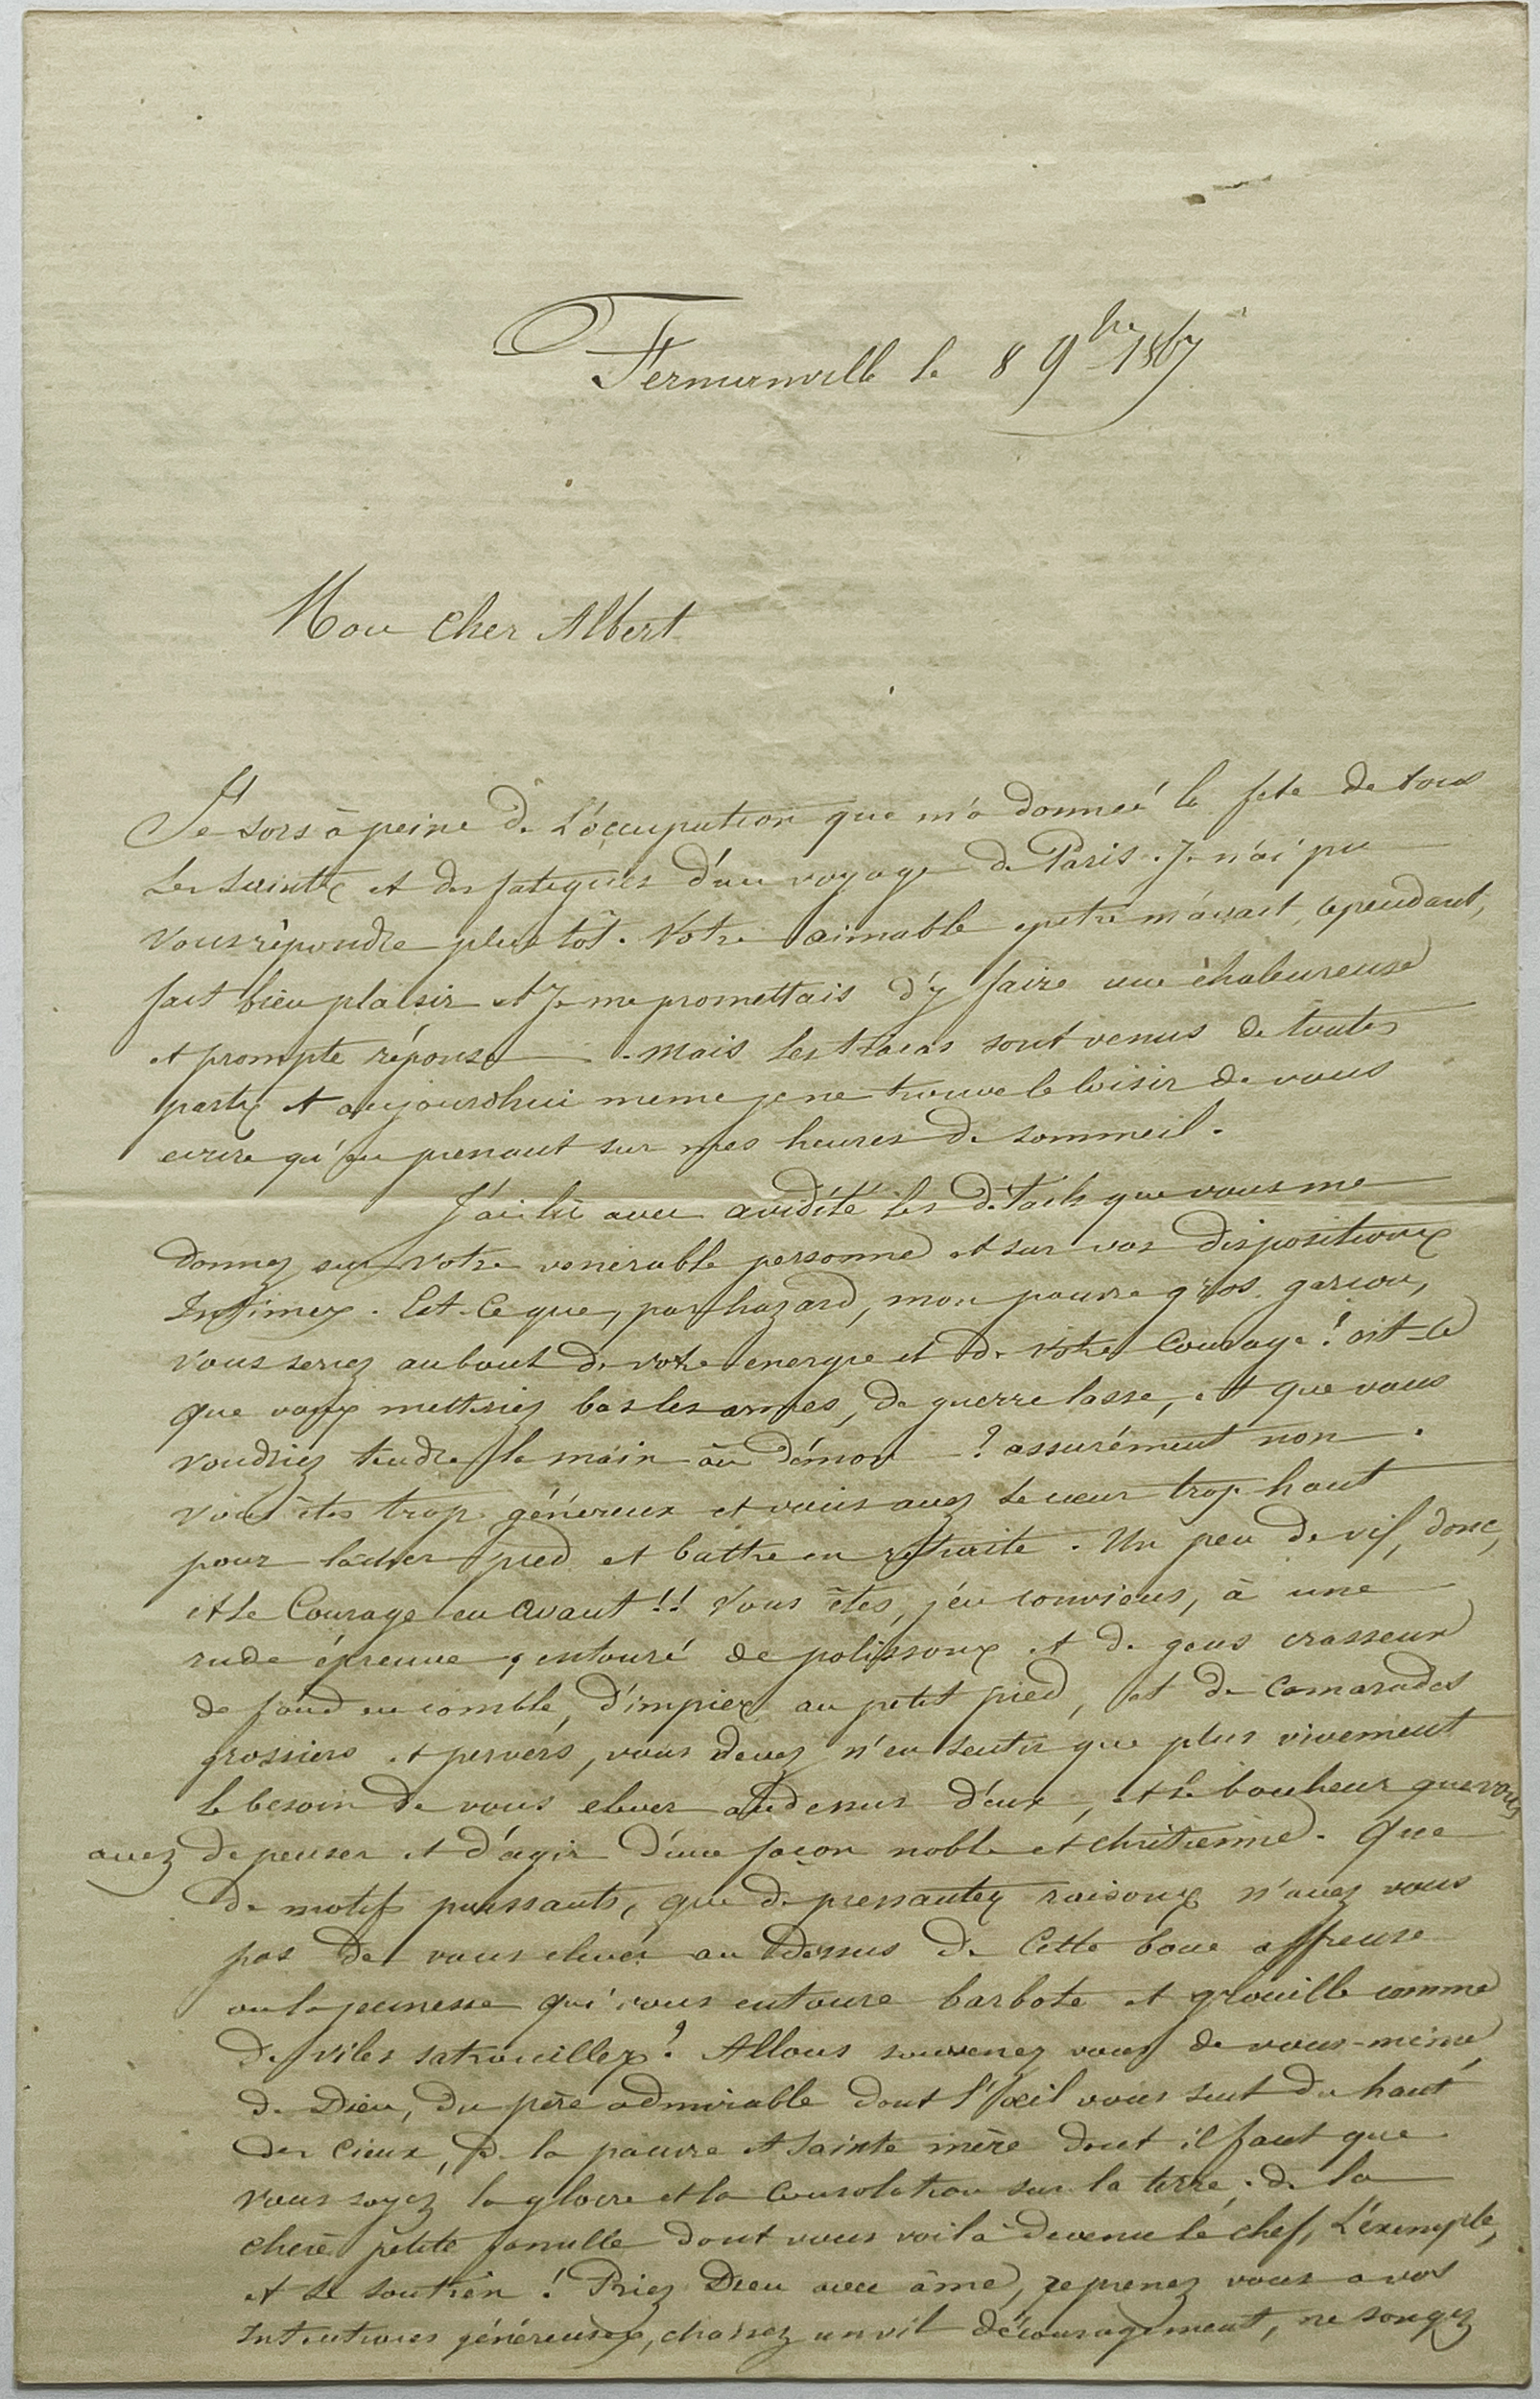 Fermanville le 8 9bre 1867
Mon cher Albert
Je sors à peine de l'occupation que m'a donneé la fete de tous
les saints et des fatigues d'un voyage de Paris. Je n'ai pu
vous répondre plus tôt. Votre aimable epitre m'avait, cependant,
fait bien plaisir et Je me promettais d'y faire une chaleureuse
et prompte réponse. Mais les tracas sont venus de toutes
parts et aujourdhui meme je ne trouve le loisir de vous
ecrire qu'en prenant sur mes heures de sommeil.
J'ai lu avec avidité les détails que vous me
donnez sur votre venerable personne et sur vos dispositions
Intimes. Est-ce que, par hazard, mon pauvre gros garcon,
vous seriez au bout de votre energie et de votre Courage? est-ce
que vous metteriez bas les armes, de guerre lasse, et que vous
voudriez tendre la main au démon ? assurément non.
Vous êtes trop généreux et vous avez le cœur trop haut
pour lacher pied et battre en retraite. Un peu de vif, donc,
et le Courage en avant!! Vous êtes, j'en conviens, à une
rude épreuve, entouré de polissons et de gens crasseux
de fond en comble, d'impies au petit pied, et de camarades
grossiers et pervers, vous devez n'en sentir que plus vivement
le besoin de vous elever audessus d'eux, et le bonheur que vous
avez de penser et d'agir d'une façon noble et chrétienne. Que
de motifs puissants, que de pressantes raisons n'avez vous
pas de vous elever au dessus de cette boue affreuse
ou la jeunesse qui vous entoure barbote et grouille comme
de viles satrouilles? Allons souvenez vous de vous-même
de Dieu, du père admirable dont l'œil vous suit du haut
des Cieux, de la pauvre et sainte mère dont il faut que
vous soyez la gloire et la Consolation sur la terre, de la
chere petite famille dont vous voilà devenu le chef, L'éxemple,
et le soutien! Priez Dieu avec âme, reprenez vous a vos
Intentions généreuses, chassez un vil découragement, ne songez